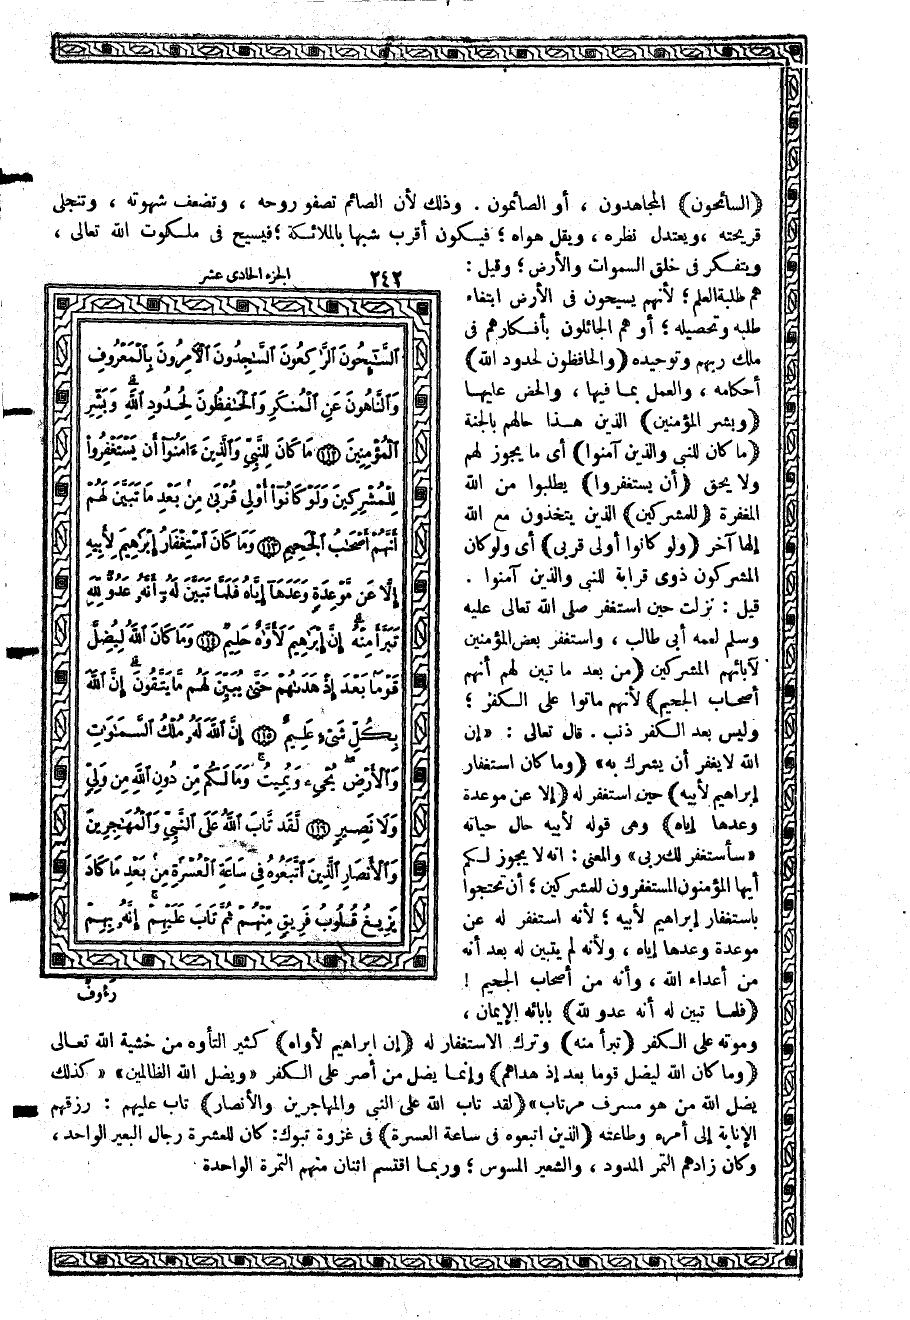 (السائحون) المجاهدون ، أو الصائمون . وذلك لأن الصائم تصفو روحه ، وتضعف شهوته ، وتنجلى
قريحته ، ويعتدل نظره ، ويقل هواه ؛ فيكون أقرب شبها بالملائكة ؛ فيسيح فى ملكوت الله تعالى ،
ويتفكر فى خلق السموات والأرض ؛ وقيل :
هم طلبة العلم ؛ لأنهم يسيحون فى الأرض ابتغاء
طلبه وتحصيله ؛ أو هم الجائلون بأفكارهم فى
ملك ربهم وتوحيده (والحافظون لحدود الله)
أحكامه ، والعمل بما فيها ، والحض عليها
(وبشر المؤمنين) الذين هذا حالهم بالجنة
(ما كان للنبى والذين آمنوا) أى ما يجوز لهم
ولا يحق (أن يستغفروا) يطلبوا من الله
المغفرة (للمشركين) الذين يتخذون مع الله
إلها آخر (ولو كانوا أولى قربى) أى ولو كان
المشركون ذوى قرابة للنبى والذين آمنوا .
قيل : نزلت حين استغفر صلى الله تعالى عليه
وسلم لعمه أبى طالب ، واستغفر بعض المؤمنين
لآبائهم المشركين (من بعد ما تبين لهم أنهم
أصحاب الجحيم) لأنهم ماتوا على الكفر ؛
وليس بعد الكفر ذنب . قال تعالى : «إن
الله لا يغفر أن يشرك به» (وما كان استغفار
إبراهيم لأبيه) حين استغفر له (إلا عن موعدة
وعدها إياه) وهى قوله لأبيه حال حياته
«سأستغفر لك ربى» والمعنى : انه لا يجوز لكم
أيها المؤمنون المستغفرون للمشركين ؛ أن تحتجوا
باستغفار إبراهيم لأبيه ؛ لأنه استغفر له عن
موعدة وعدها إياه ، ولأنه لم يتبين له بعد أنه
من أعداء الله ، وأنه من أصحاب الجحيم !
(فلما تبين له أنه عدو لله) بابائه الإيمان ،
وموته على الكفر (تبرأ منه) وترك الاستغفار له (إن ابراهيم لأواه) كثير التأوه من خشية الله تعالى
(وما كان الله ليضل قوما بعد إذ هداهم) وإنما يضل من أصر على الكفر «ويضل الله الظالمين» «كذلك
يضل الله من هو مسرف مرتاب» (لقد تاب الله على النبى والمهاجرين والأنصار) تاب عليهم : رزقهم
الإنابة إلى أمره وطاعته (الذين اتبعوه فى ساعة العسرة) فى غزوة تبوك : كان للعشرة رجال البعير الواحد ،
وكان زادهم التمر المدود ، والشعير المسوس ؛ وربما اقتسم اثنان منهم التمرة الواحدة
٢٤٢ الجزء الحادى عشر
ٱلسَّٰٓئِحُونَ ٱلرَّٰكِعُونَ ٱلسَّٰجِدُونَ ٱلْءَامِرُونَ بِٱلْمَعْرُوفِ
وَٱلنَّاهُونَ عَنِ ٱلْمُنكَرِ وَٱلْحَٰفِظُونَ لِحُدُودِ ٱللَّهِ ۗ وَبَشِّرِ
ٱلْمُؤْمِنِينَ ١١٢ مَا كَانَ لِلنَّبِيِّ وَٱلَّذِينَ ءَامَنُوٓا۟ أَن يَسْتَغْفِرُوا۟
لِلْمُشْرِكِينَ وَلَوْ كَانُوٓا۟ أُو۟لِي قُرْبَىٰ مِنۢ بَعْدِ مَا تَبَيَّنَ لَهُمْ
أَنَّهُمْ أَصْحَٰبُ ٱلْجَحِيمِ ١١٣ وَمَا كَانَ ٱسْتِغْفَارُ إِبْرَٰهِيمَ لِأَبِيهِ
إِلَّا عَن مَّوْعِدَةٍ وَعَدَهَآ إِيَّاهُ فَلَمَّا تَبَيَّنَ لَهُۥٓ أَنَّهُۥ عَدُوٌّ لِّلَّهِ
تَبَرَّأَ مِنْهُ ۚ إِنَّ إِبْرَٰهِيمَ لَأَوَّٰهٌ حَلِيمٌ ١١٤ وَمَا كَانَ ٱللَّهُ لِيُضِلَّ
قَوْمًۢا بَعْدَ إِذْ هَدَىٰهُمْ حَتَّىٰ يُبَيِّنَ لَهُم مَّا يَتَّقُونَ ۚ إِنَّ ٱللَّهَ
بِكُلِّ شَىْءٍ عَلِيمٌ ١١٥ إِنَّ ٱللَّهَ لَهُۥ مُلْكُ ٱلسَّمَٰوَٰتِ
وَٱلْأَرْضِ ۖ يُحْىِۦ وَيُمِيتُ ۚ وَمَا لَكُم مِّن دُونِ ٱللَّهِ مِن وَلِيٍّ
وَلَا نَصِيرٍ ١١٦ لَّقَد تَّابَ ٱللَّهُ عَلَى ٱلنَّبِيِّ وَٱلْمُهَٰجِرِينَ
وَٱلْأَنصَارِ ٱلَّذِينَ ٱتَّبَعُوهُ فِى سَاعَةِ ٱلْعُسْرَةِ مِنۢ بَعْدِ مَا كَادَ
يَزِيغُ قُلُوبُ فَرِيقٍ مِّنْهُمْ ثُمَّ تَابَ عَلَيْهِمْ ۚ إِنَّهُۥ بِهِمْ
رَءُوفٌ